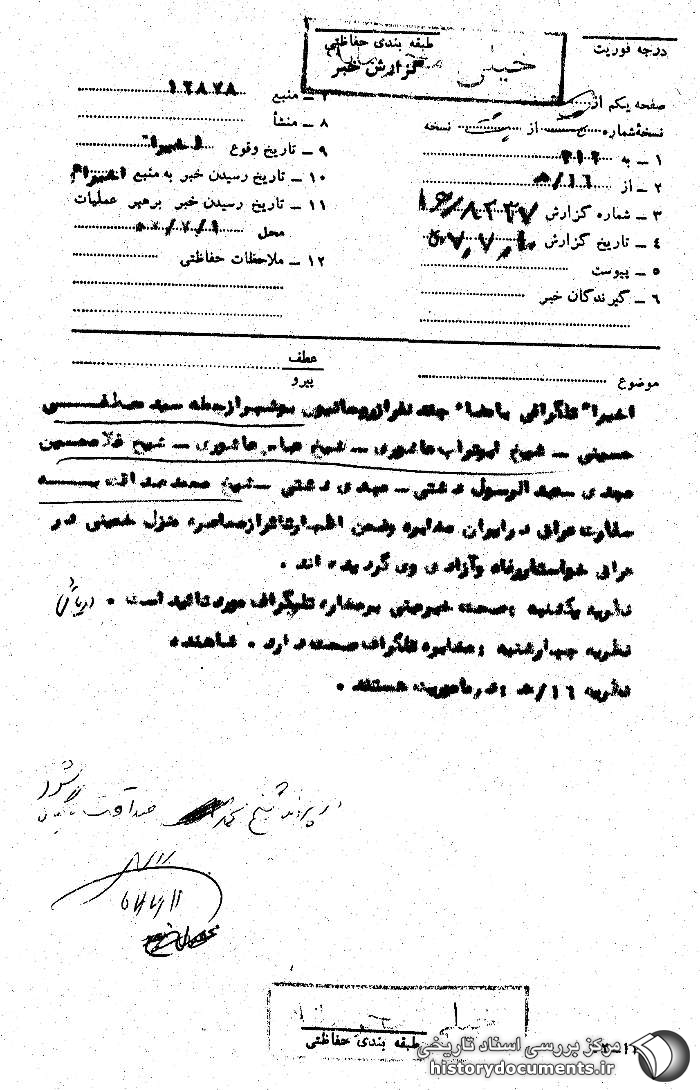 درجه فوریت
طبقه بندی حفاظتی
خیلی
گزارش خبر
صفحه یکم از
نسخه شماره از نسخه
۱ – به ۳۱۲
۲ – از ۱۶/ﻫ
۳ – شماره گزارش
۴ – تاریخ گزارش
۵ – پیوست
۶ – گیرندگان خبر
۷ – منبع ۱۲۸۷۸
۸ – منشأ
۹ – تاریخ وقوع اخیرا"
۱۰ – تاریخ رسیدن خبر به منبع اخیرا"
۱۱ – تاریخ رسیدن خبر برهبر عملیات
محل ۵۷/۷/۱
۱۲ – ملاحظات حفاظتی
موضوع
عطف
پیرو
اخیرا" تلگرافی بامضاء چند نفر از روحانیون بوشهر از جمله سید مصطفی
حسینی – شیخ ابوتراب عاشوری – شیخ عباس عاشوری – شیخ غلامحسین
مجدی – عبدالرسول دشتی – مهدی دشتی – شیخ محمد صداقت به
سفارت عراق در ایران مخابره وضمن اظهار تاثر از محاصره منزل خمینی در
عراق خواستار رفاه وآزادی وی گردیده اند .
نظریه یکشنبه : صحت خبر مبنی بر مخابره تلگراف مورد تائید است .
نظریه چهارشنبه : مخابره تلگراف صحت دارد .
نظریه ۱۶/ﻫ : در ماموریت هستند .
در پرونده شیخ محمد صداقت بایگانی شود
طبقه بندی حفاظتی
مرکز بررسی اسناد تاریخی
historydocuments.ir